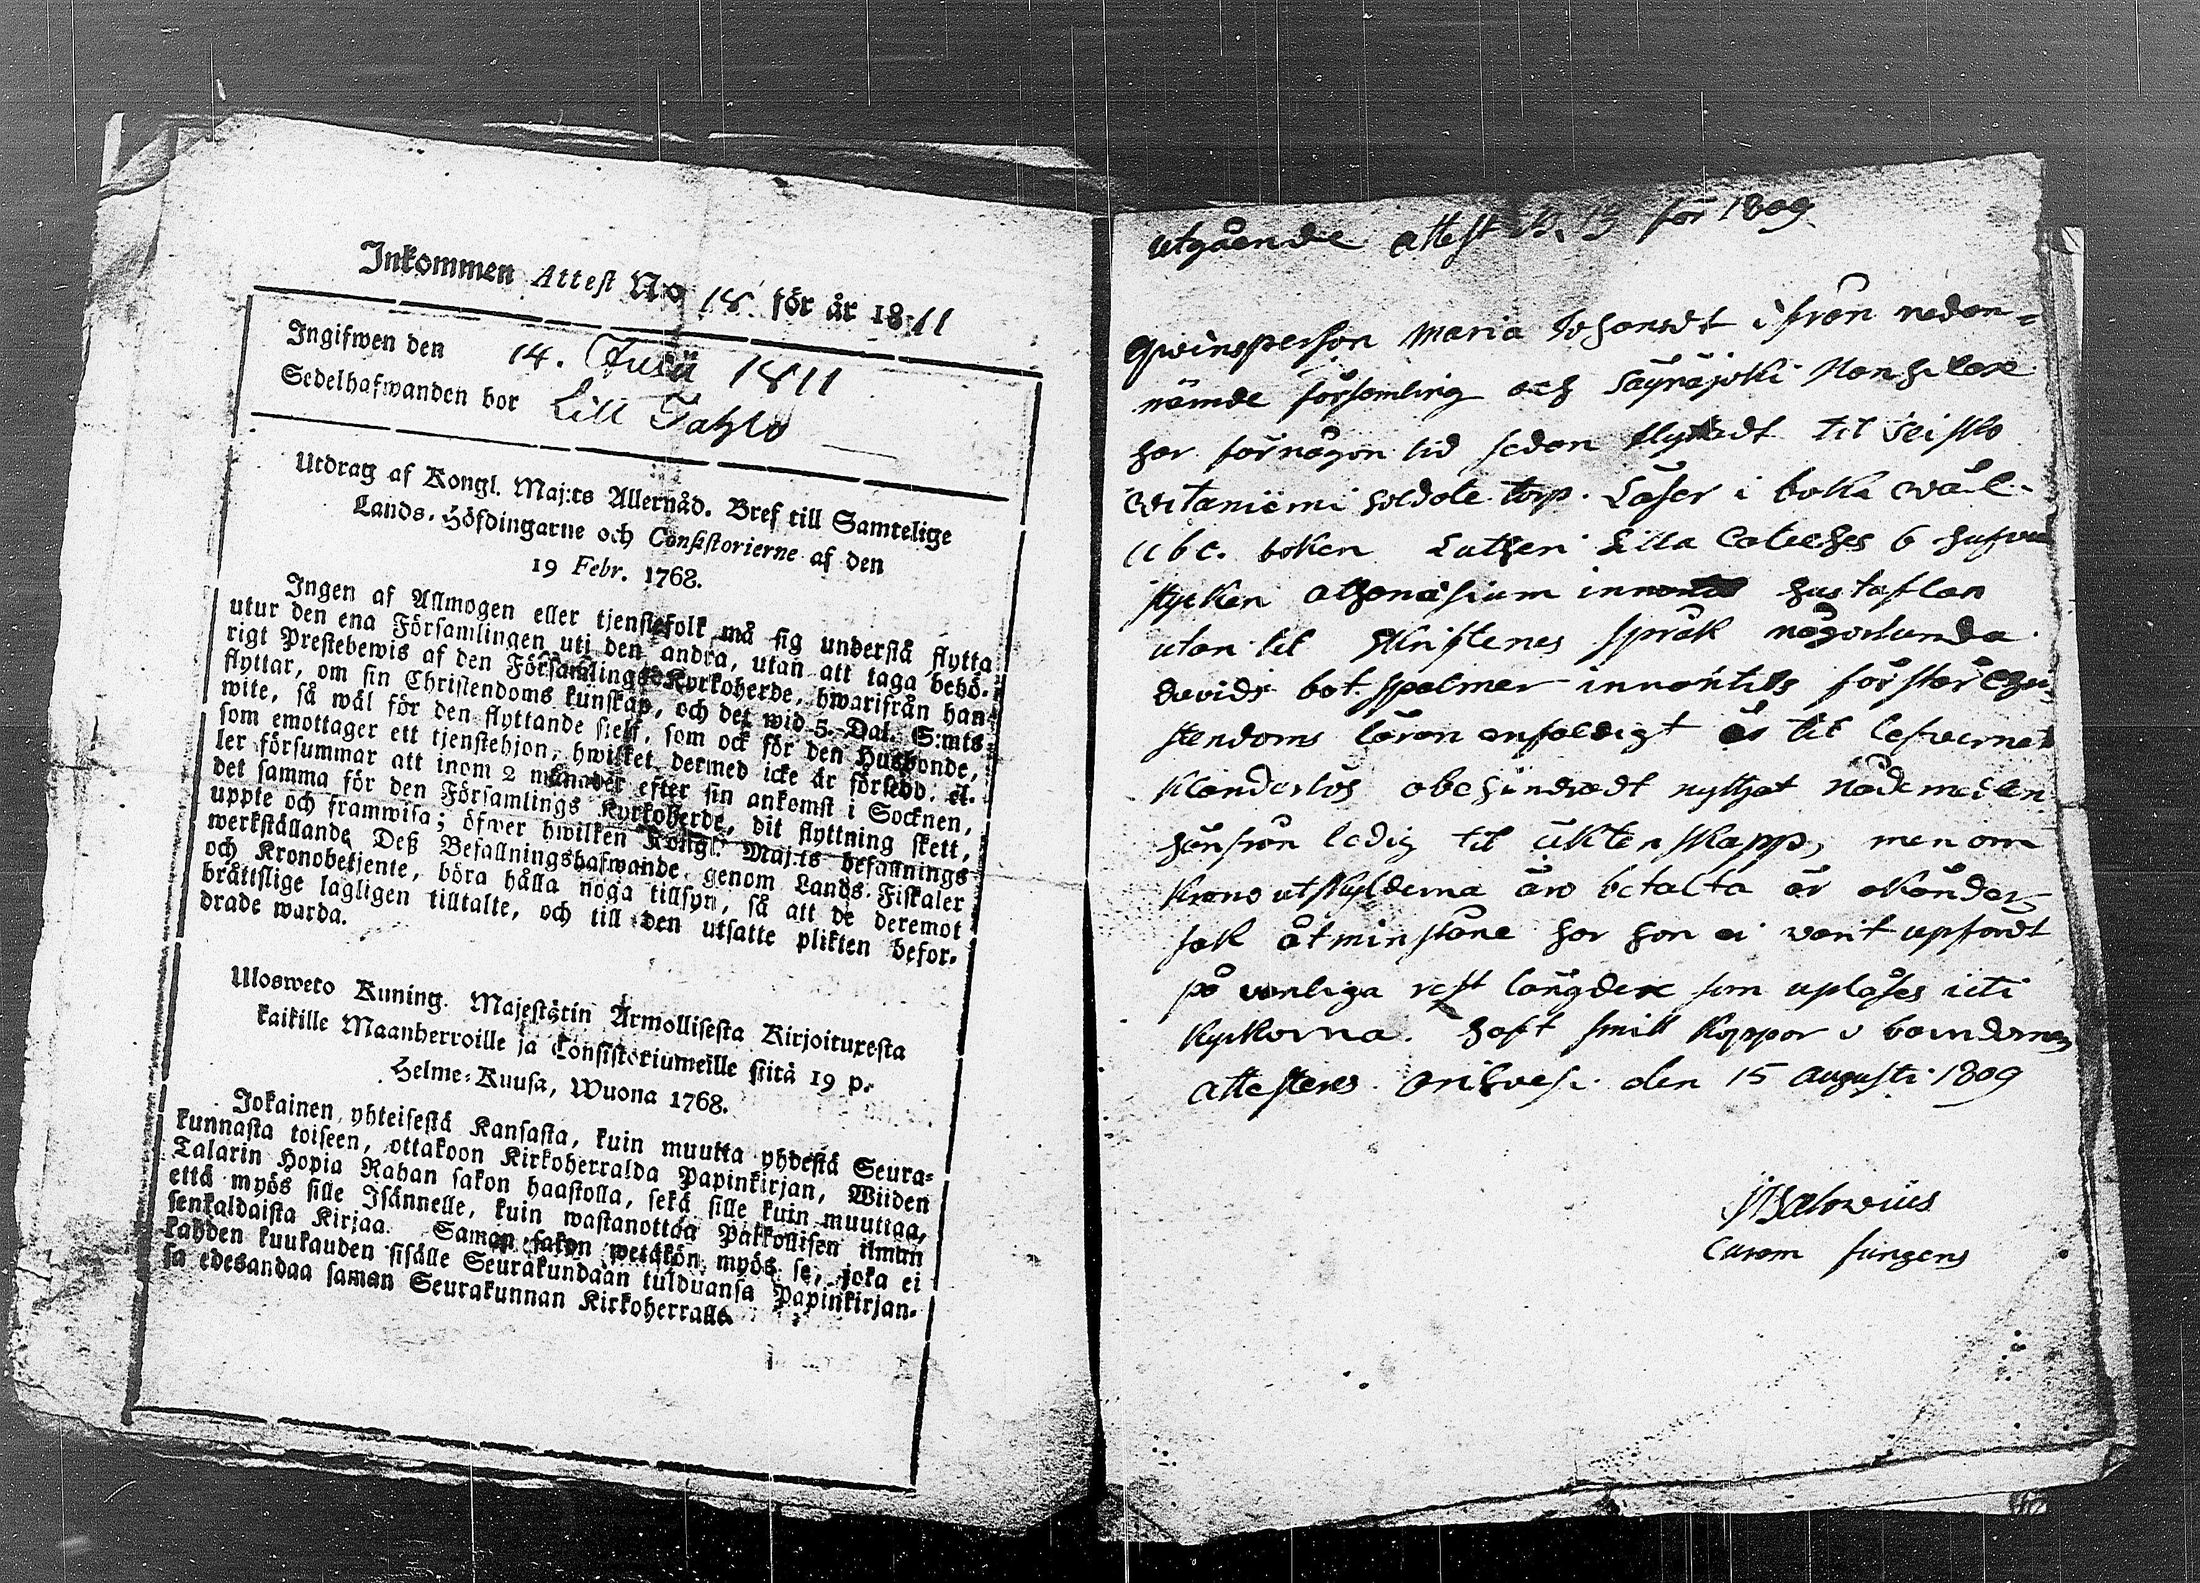 Inkommen Attest No 18. för år 1811
Ingifwen den 14. Julii 1811
Sedelhafwanden bor Lill Tahlo
Utdrag af Kongl. Maj:ts Allernåd. Bref till Samtelige
Lands-Höfdingarne och Consistorierne af den
19 Febr. 1768.
Ingen af Allmogen eller tjenstefolk må sig understå flytta
utur den ena Församlingen uti den andra, utan att taga behö-
rigt Prestebewis af den Församlings Kyrkoherde, hwarifrån han
flyttar, om sin Christendoms kunskap, och det wid 5. Dal. S:mts
wite, så wäl för den flyttande sjelf, som ock för den Husbonde,
som emottager ett tjenstehjon, hwilket dermed icke är försedd, el-
ler försummar att inom 2 månader efter sin ankomst i Socknen,
det samma för den Församlings Kyrkoherde, dit flyttning skett,
uppte och framwisa; öfwer hwilken Kongl. Maj:ts befallnings
werkställande Deß Befallningshafwande, genom Lands-Fiskaler
och Kronobetjente, böra hålla noga tillsyn, så att de deremot
bråttslige lagligen tilltalte, och till den utsatte plikten befor-
drade warda.
Ulosweto Kuning. Majestätin Armollisesta Kirjoituxesta
kaikille Maanherroille ja Consistoriumeille siitä 19 p.
Helme-Kuusa, Wuona 1768.
Jokainen yhteisestä Kansasta, kuin muutta yhdestä Seura-
kunnasta toiseen, ottakoon Kirkoherralda Papinkirjan, Wiiden
Talarin Hopia Rahan sakon haastolla, sekä sille kuin muuttaa,
että myös sille Isännelle, kuin wastanottaa Palkollisen ilman
senkaldaista Kirjaa. Saman sakon wetäkön myös se, joka ei
kahden kuukauden sisälle Seurakundaan tulduansa Papinkirjan-
sa edesandaa saman Seurakunnan Kirkoherralle.
utgående attest N. 13 för 1809
Qwinsperson Maria Johansdt ifrån nedan-
nämde församling och Säynäjoki
har för någon tid sedan flyttadt til Seisko
Witaniemi soldate torp. Läser i boka wäl
abc. boken Lutheri Lilla Cateches 6 hufwud
stycken athanasium innantil hustaflan
utan til skriftenes språk någorlunda
davids bot. psalmer innantils förstår Chri
stendoms läran enfaldigt är til lefwernet
klanderlös obehindradt nyttjat nådemedlen
härifrån ledig til äktenskapp, men om
krono utskylderna äro betalta är okänder
sak åtminstone har hon ei varit upfördt
på vanliga rest längder som upläses uti
kyrkorna. haft små koppor i barndomen
attesteras. Orihvesi den 15 Augusti 1809